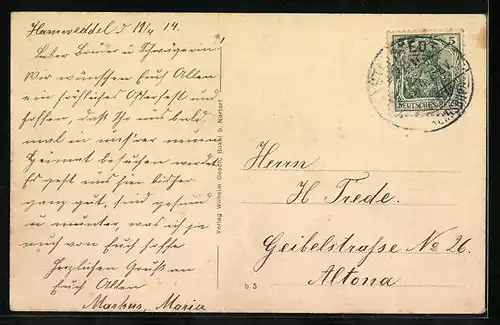 Hamweddel d 10/4 14.
Lieber Bruder u Schwägerin!
Wir wünschen Euch Allen
ein fröhliches Osterfest und
hoffen, dass Ihr uns bald
mal in uns'rer neuen
Heimat besuchen werdet
Es geht uns hier bisher
ganz gut, sind gesund
u munter, was ich ja
auch von Euch hoffe
Herzlichen Gruß an
Euch Allen
Markus, Maria
Verlag Wilhelm Gosch, Bokhl b. Nortorf
b 5
5
DEUTSCHES
Herrn
H Trede.
Geibelstraße No 26.
Altona